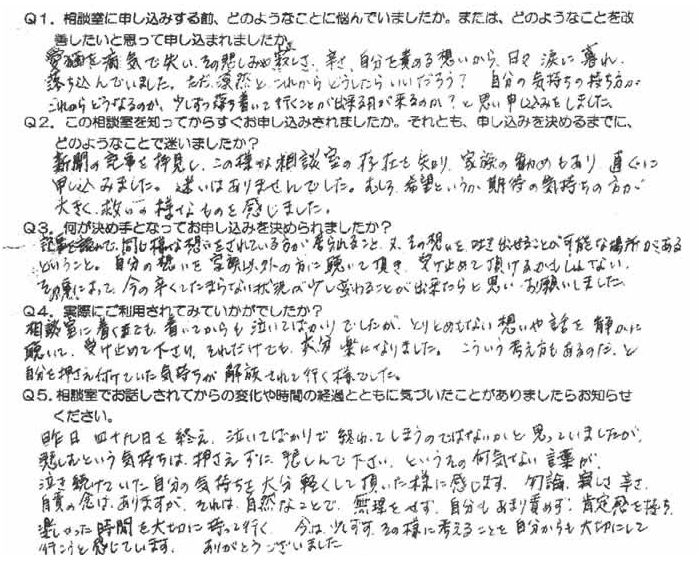 Q1．相談室に申し込みする前、どのようなことに悩んでいましたか。または、どのようなことを改
善したいと思って申し込まれましたか。
愛猫を病気で失い、その悲しみや寂しさ、辛さ、自分を責める想いから、日々涙に暮れ、
落ち込んでいました。ただ、漠然と、これからどうしたらいいだろう？ 自分の気持ちの持ち方が
これからどうなるのか、少しずつ落ち着いて行くことが出来る日が来るのか？と思い申し込みをしました。
Q2．この相談室を知ってからすぐお申し込みされましたか。それとも、申し込みを決めるまでに、
どのようなことで迷いましたか？
新聞の記事を拝見し、この様な相談室の存在を知り、家族の勧めもあり、直ぐに
申し込みました。迷いはありませんでした。むしろ、希望というか、期待の気持ちの方が
大きく、救いの様なものを感じました。
Q3．何が決め手となってお申し込みを決められましたか？
記事を読んで、同じ様な想いをされている方が居られること、又、その想いを吐き出せることが可能な場所がある
ということ。自分の想いを家族以外の方に聴いて頂き、受け止めて頂けるかもしれない、
その事によって、今の辛くてたまらない状況が少し変わることが出来たらと思い、お願いしました。
Q4．実際にご利用されてみていかがでしたか？
相談室に着くまでも、着いてからも泣いてばかりでしたが、とりとめもない想いや話を静かに
聴いて、受け止めて下さり、それだけでも、大分楽になりました。こういう考え方もあるのだ、と
自分を押さえ付けていた気持ちが解放されて行く様でした。
Q5．相談室でお話しされてからの変化や時間の経過とともに気づいたことがありましたらお知らせ
ください。
昨日四十九日を終え、泣いてばかりで終わってしまうのではないかと思っていましたが、
悲しむという気持ちは、押さえずに悲しんで下さい、というその何気ない言葉が
泣き続けていた自分の気持ちを大分軽くして頂いた様に感じます。勿論、寂しさ辛さ、
自責の念は、ありますが、それは、自然なことで、無理をせず、自分もあまり責めず、肯定感を持ち、
楽しかった時間を大切に持って行く、今は、少しずつその様に考えることを自分からも大切にして
行こうと感じています。ありがとうございました